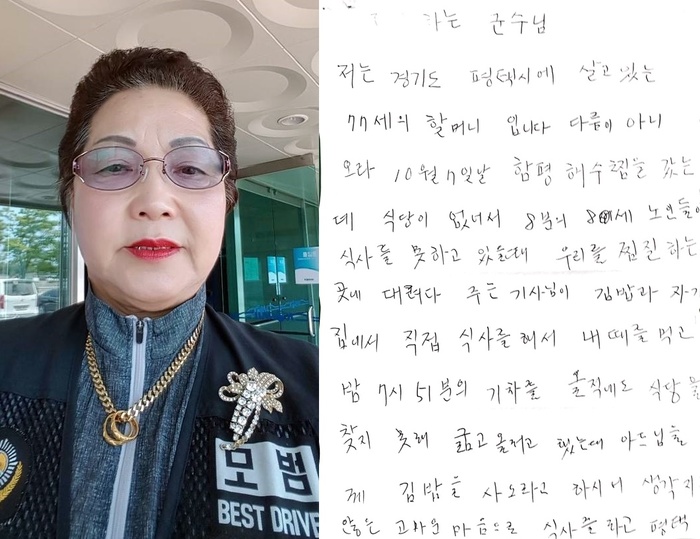 모범
BEST DRIVE
하는 군수님
저는 경기도 평택시에 살고 있는
77세의 할머니 입니다 다름이 아니
오라 10월 7일날 함평 해수찜을 갔는
데 식당이 없너서 8분의 80세 노인들이
식사를 못하고 있을때 우리를 찜질하는
곳에 대려다 주는 기사님이 김밥과 자기
집에서 직접 식사를 해서 내때를 먹고
밤 7시 51분의 기차를 올직에도 식당을
찾지 못해 굶고 올려고 했는데 아드님을
께 김밥을 사오라고 하시니 생각지
않은 고마운 마음으로 식사를 하고 평택